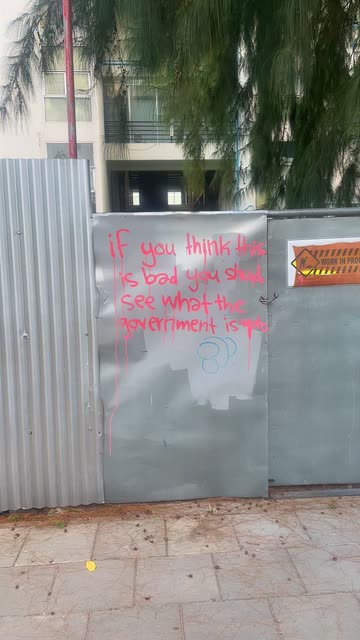 if you think this
is bad you should
see what the
government is
WORK IN PRO